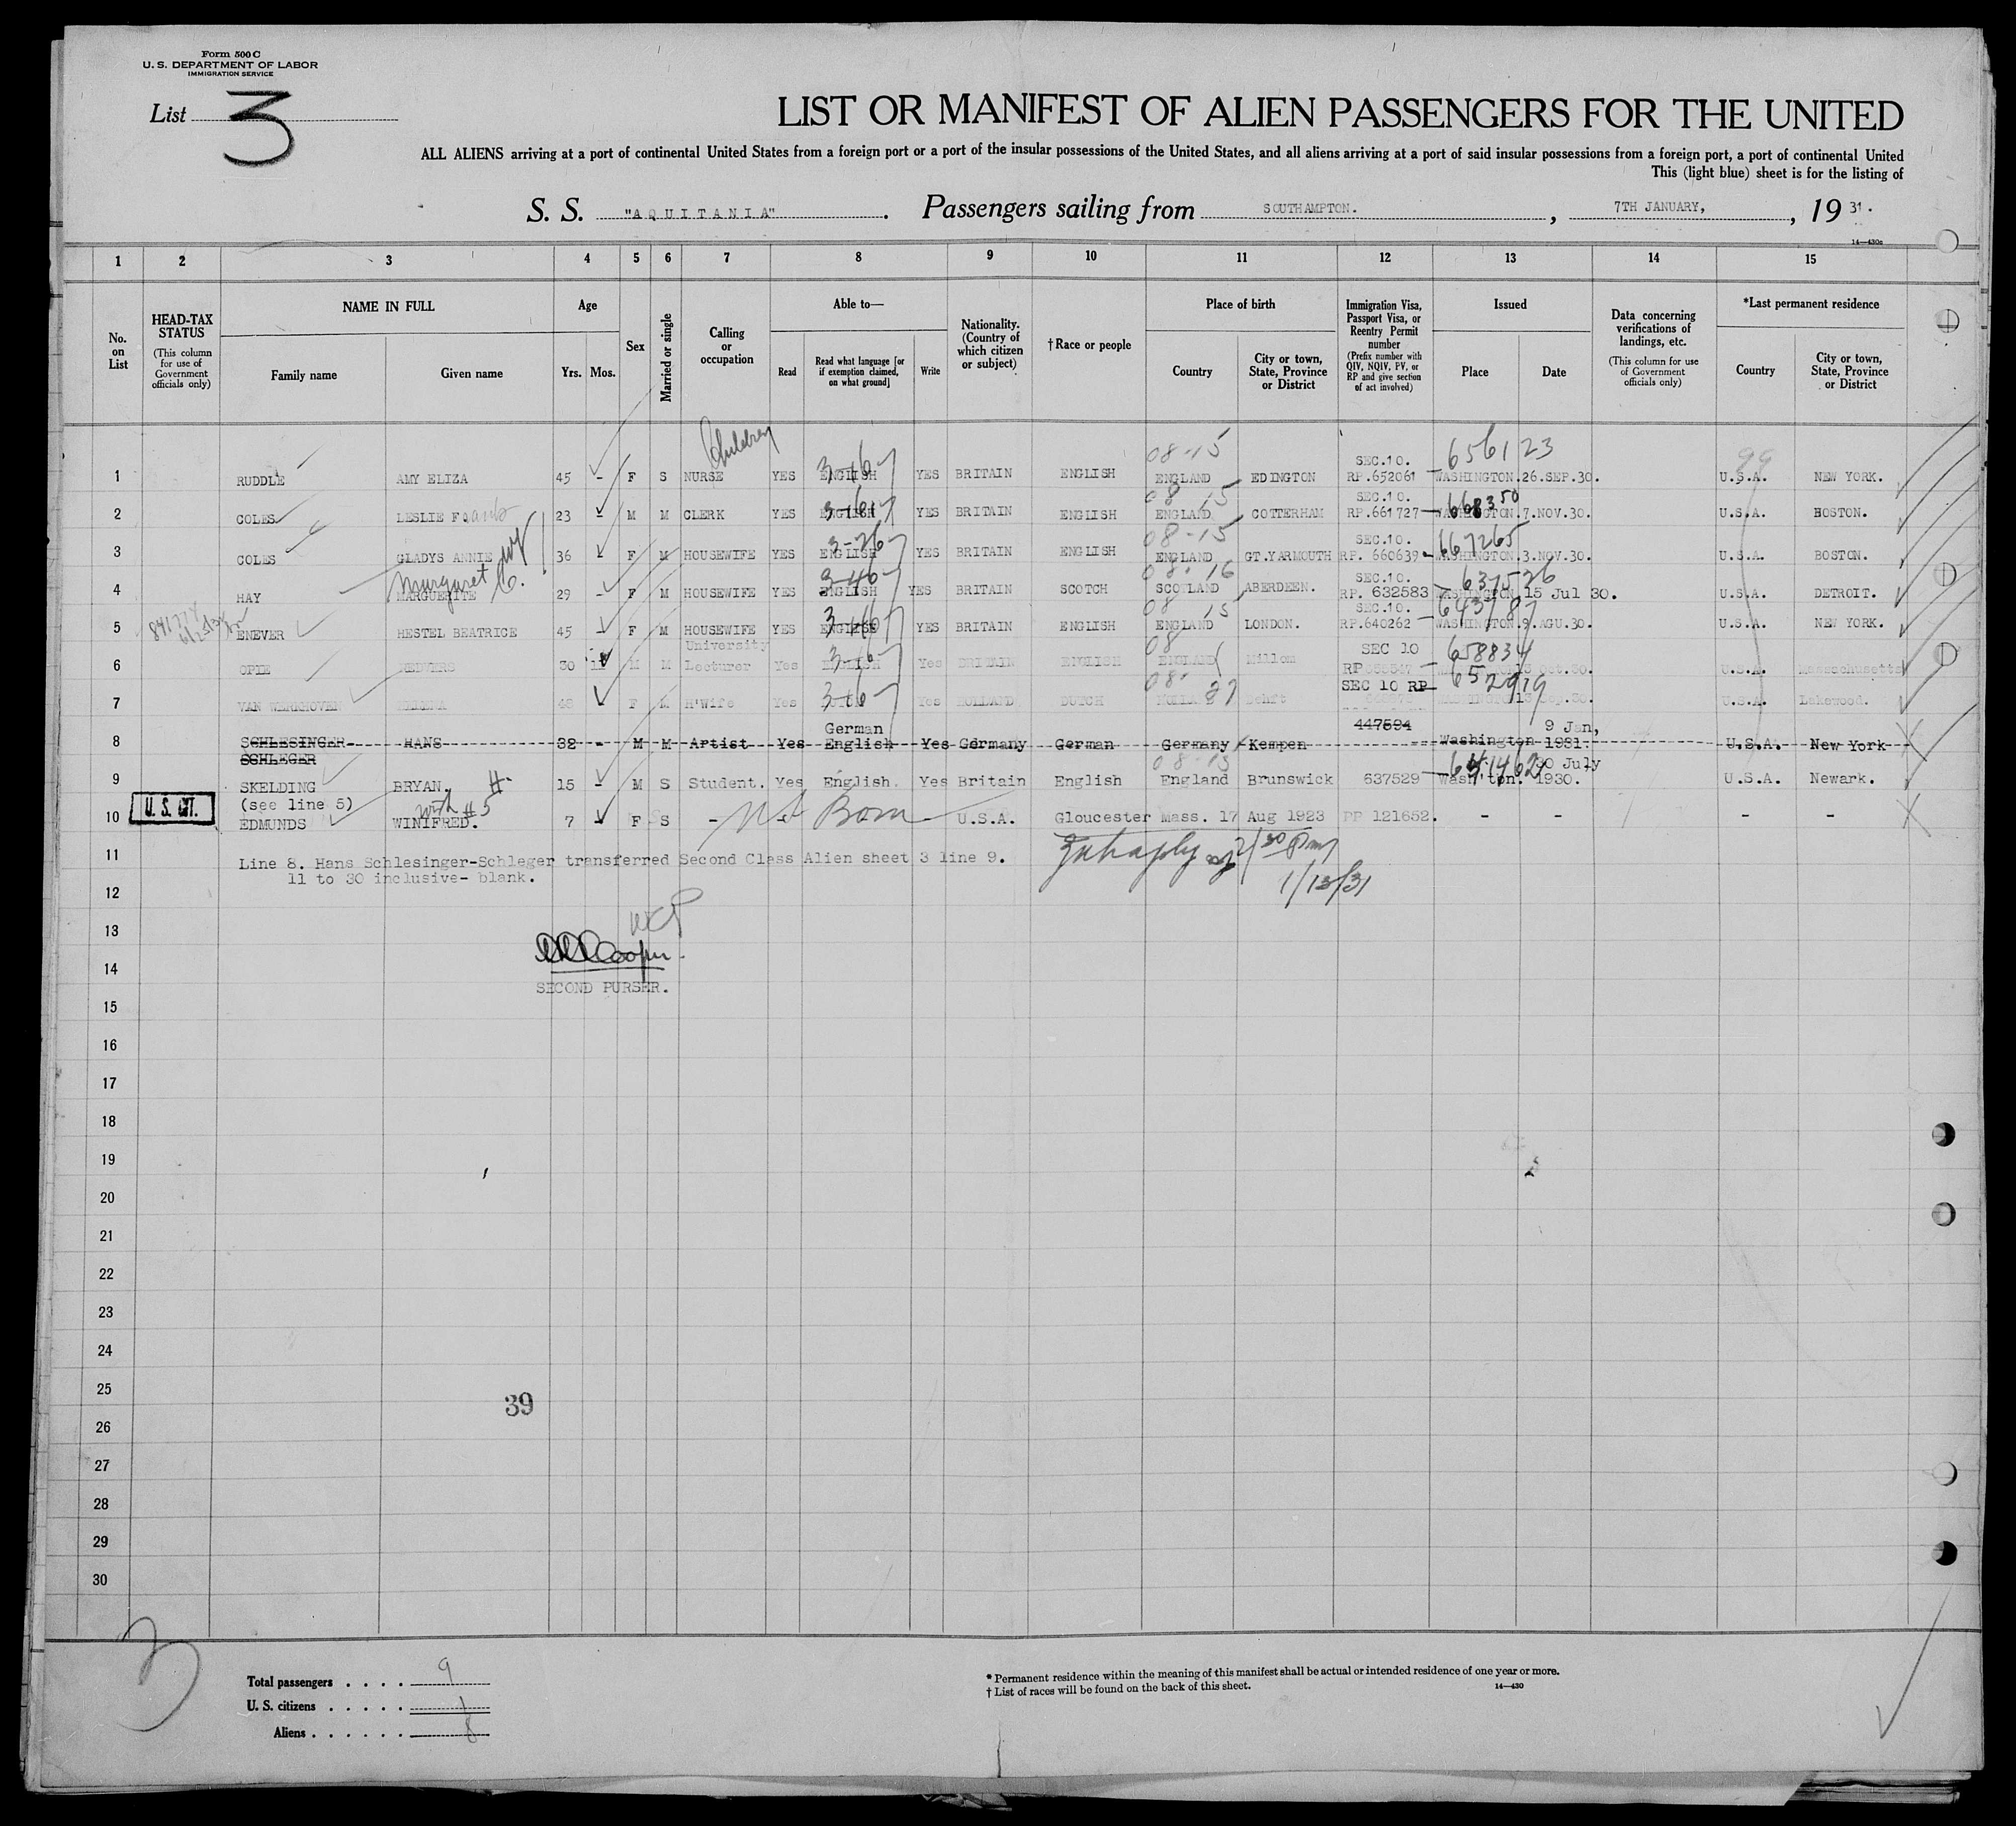 Form 500 C
U. S. DEPARTMENT OF LABOR
IMMIGRATION SERVICE
List 3
LIST OR MANIFEST OF ALIEN PASSENGERS FOR THE UNITED
ALL ALIENS arriving at a port of continental United States from a foreign port or a port of the insular possessions of the United States, and all aliens arriving at a port of said insular possessions from a foreign port, a port of continental United
This (light blue) sheet is for the listing of
S. S. "AQUITANIA". Passengers sailing from SOUTHAMPTON. , 7TH JANUARY, , 19 31.
14—430c
1 2 3 4 5 6 7 8 9 10 11 12 13 14 15
No. on List
HEAD-TAX STATUS
(This column for use of Government officials only)
NAME IN FULL
Family name
Given name
Age
Yrs. Mos.
Sex
Married or single
Calling or occupation
Able to—
Read
Read what language [or if exemption claimed, on what ground]
Write
Nationality. (Country of which citizen or subject)
†Race or people
Place of birth
Country
City or town, State, Province or District
Immigration Visa, Passport Visa, or Reentry Permit number
(Prefix number with QIV, NQIV, PV, or RP and give section of act involved)
Issued
Place
Date
Data concerning verifications of landings, etc.
(This column for use of Government officials only)
*Last permanent residence
Country
City or town, State, Province or District
Children 08-15 656123 99
1 RUDDLE AMY ELIZA 45 - F S NURSE YES ENGLISH YES BRITAIN ENGLISH ENGLAND EDINGTON SEC.10. RP.652061 WASHINGTON.26.SEP.30. U.S.A. NEW YORK.
08 15 668350
2 COLES LESLIE F 23 - M M CLERK YES ENGLISH YES BRITAIN ENGLISH ENGLAND COTTERHAM SEC.10. RP.661727 WASHINGTON.7.NOV.30. U.S.A. BOSTON.
08-15 667265
3 COLES GLADYS ANNIE wf 36 - F M HOUSEWIFE YES ENGLISH YES BRITAIN ENGLISH ENGLAND GT.YARMOUTH SEC.10. RP. 660639 WASHINGTON.3.NOV.30. U.S.A. BOSTON.
Margaret C. 08-16 637526
4 HAY MARGUERITE 29 - F M HOUSEWIFE YES ENGLISH YES BRITAIN SCOTCH SCOTLAND ABERDEEN. SEC.10. RP. 632583 WASHINGTON 15 Jul 30. U.S.A. DETROIT.
08 15 643187
5 ENEVER HESTEL BEATRICE 45 - F M HOUSEWIFE YES ENGLISH YES BRITAIN ENGLISH ENGLAND LONDON. SEC.10. RP.640262 WASHINGTON.9.AGU.30. U.S.A. NEW YORK.
08 658834
6 OPIE REDVERS 30 M M University Lecturer Yes ENGLISH Yes BRITAIN ENGLISH ENGLAND Millom SEC 10 RP Oct.30. U.S.A. Massachusetts
08- 27 652919
7 VAN WERKHOVEN 48 F M H'Wife Yes Yes HOLLAND DUTCH HOLLAND Delft SEC 10 RP U.S.A. Lakewood.
8 SCHLESINGER- SCHLEGER HANS 32 - M M Artist Yes German English Yes Germany German Germany Kempen 447594 Washington 9 Jan, 1931. U.S.A. New York
08-15 641462
9 SKELDING BRYAN. H. 15 - M S Student. Yes English. Yes Britain English England Brunswick 637529 Wash'ton. 30 July 1930. U.S.A. Newark.
U. S. CIT.
10 (see line 5) EDMUNDS WINIFRED. with #5 7 - F S - - Born U.S.A. Gloucester Mass. 17 Aug 1923 PP 121652. - - - -
11 Line 8. Hans Schlesinger-Schleger transferred Second Class Alien sheet 3 line 9.
11 to 30 inclusive- blank.
30 Pm
1/13/31
12
13
14
Cooper
SECOND PURSER.
15
16
17
18
19
20
21
22
23
24
25
39
26
27
28
29
30
3
Total passengers . . . . 9
U. S. citizens . . . . . 1
Aliens . . . . . . 8
* Permanent residence within the meaning of this manifest shall be actual or intended residence of one year or more.
† List of races will be found on the back of this sheet.
14—430